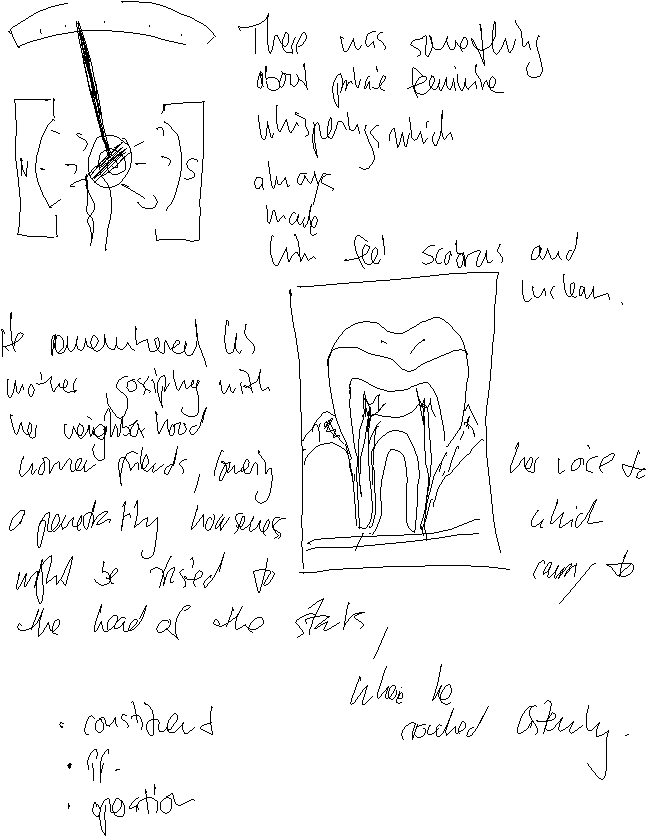 There was something
about private feminine
whisperings which
always
made
him feel scabrous and
unclean.
N S
He remembered his
mother gossiping with
her neighborhood
women friends, lowering her voice to
a penetrating hoarseness which
might be trusted to carry to
the head of the stairs,
where he
crouched listening.
· constituent
· pp.
· operation